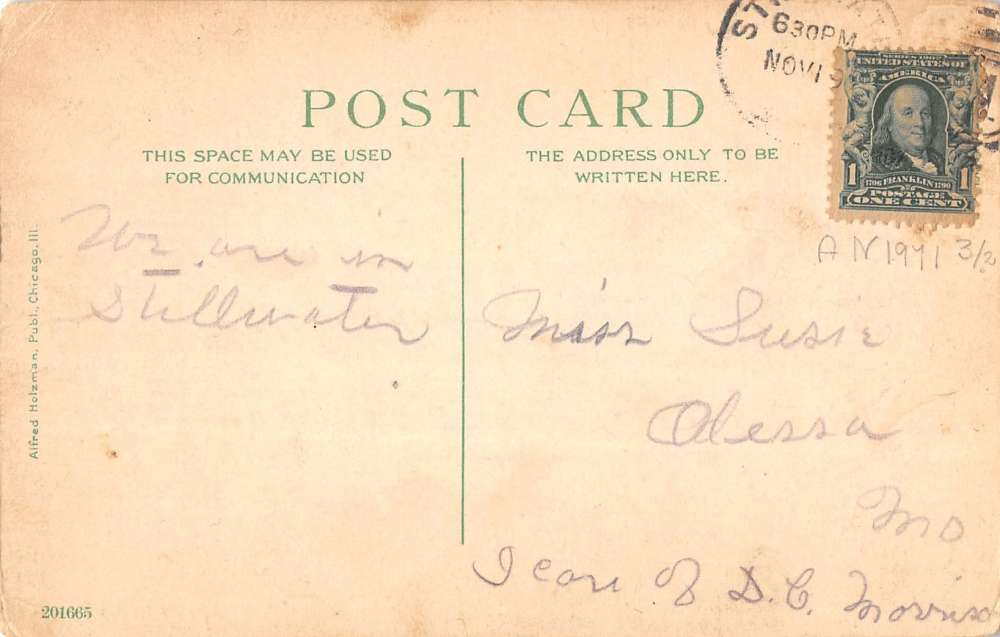 630PM
NOV 19
POST CARD
SERIES 1902
UNITED STATES OF
AMERICA
1 1
1706 FRANKLIN 1790
POSTAGE
ONE CENT
THIS SPACE MAY BE USED
FOR COMMUNICATION
THE ADDRESS ONLY TO BE
WRITTEN HERE.
We are in
Stillwater
3/2
Miss Susie
Odessa
Mo
I care of D.C. Morris
Alfred Holzman, Publ., Chicago, Ill.
201665